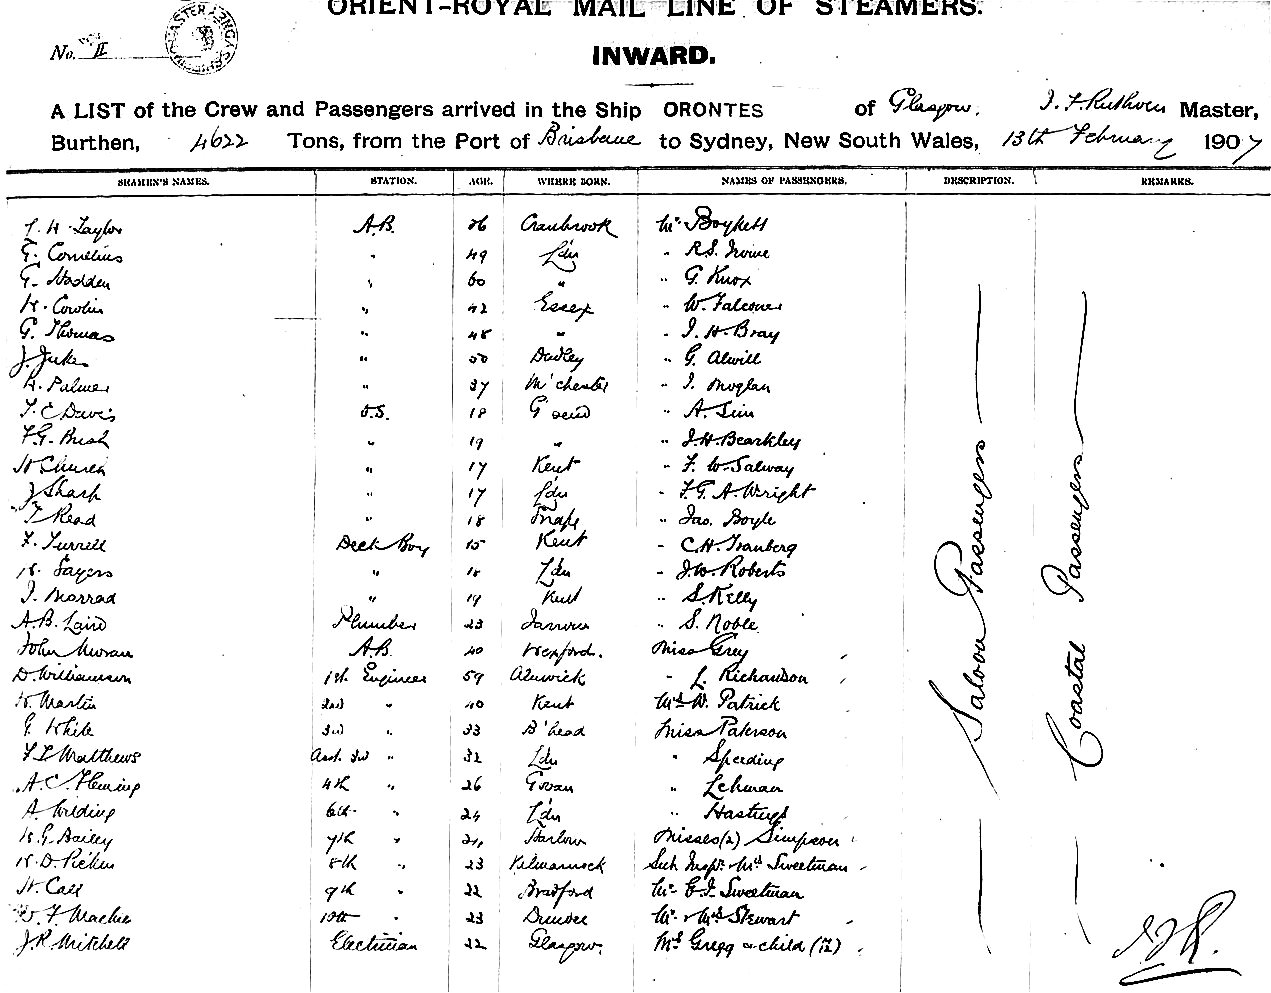 ORIENT-ROYAL MAIL LINE OF STEAMERS.
No. II
INWARD.
A LIST of the Crew and Passengers arrived in the Ship ORONTES of Glasgow, J. F. Ruthven Master,
Burthen, 4622 Tons, from the Port of Brisbane to Sydney, New South Wales, 13th February 1907
SEAMEN'S NAMES. STATION. AGE. WHERE BORN. NAMES OF PASSENGERS. DESCRIPTION. REMARKS.
Taylor A.B. 26 Cranbrook Mr Boykett
G. Cornelius " 49 Ldn " R.S.
G. Hadden " 60 " " G. Knox
H. Cowlin " 42 Essex " W. Falconer
G. Thomas " 48 " " J. H. Bray
J. Jukes " 50 Dudley " G. Alwill
H. Palmer " 37 M'chester " J.
T. C. Davis O.S. 18 G'send " A. Sim
F. G. Bush " 19 " " J. H. Bearkley
H Church " 17 Kent " F. W. Salway
J Sharp " 17 Ldn " F. G. A. Wright
T. Read " 18 " Jas. Boyle
F. Turrell Deck Boy 15 Kent " C. H. Tranberg
Sayers " 18 Ldn " J. W. Roberts
" 19 Kent " S. Kelly
A. B. Laird Plumber 23 Jarrow " S. Noble
John Moran A.B. 40 Wexford. Miss Grey
D. Williamson 1st. Engineer 59 Alnwick " L. Richardson
H. Martin 2nd " 40 Kent Mrs W. Patrick
G. White 3rd " 33 B'head Miss Paterson
Matthews Asst. 3rd " 32 Ldn " Speeding
A. C. Fleming 4th " 26 Govan " Lehman
A. Wilding 6th " 24 Ldn " Hastings
Bailey 7th " 24 Harlow Misses (2) Simpson
8th " 23 Kilmarnock Sub Inspr. & Mrs Sweetman
H. Call 9th " 22 Bradford Mr E. J. Sweetman
W. F. Mackie 10th " 23 Dundee Mr & Mrs Stewart
J. R. Mitchell Electrician 22 Glasgow. Mrs Gregg & child
Saloon Passengers
Coastal Passengers
J.F.R.